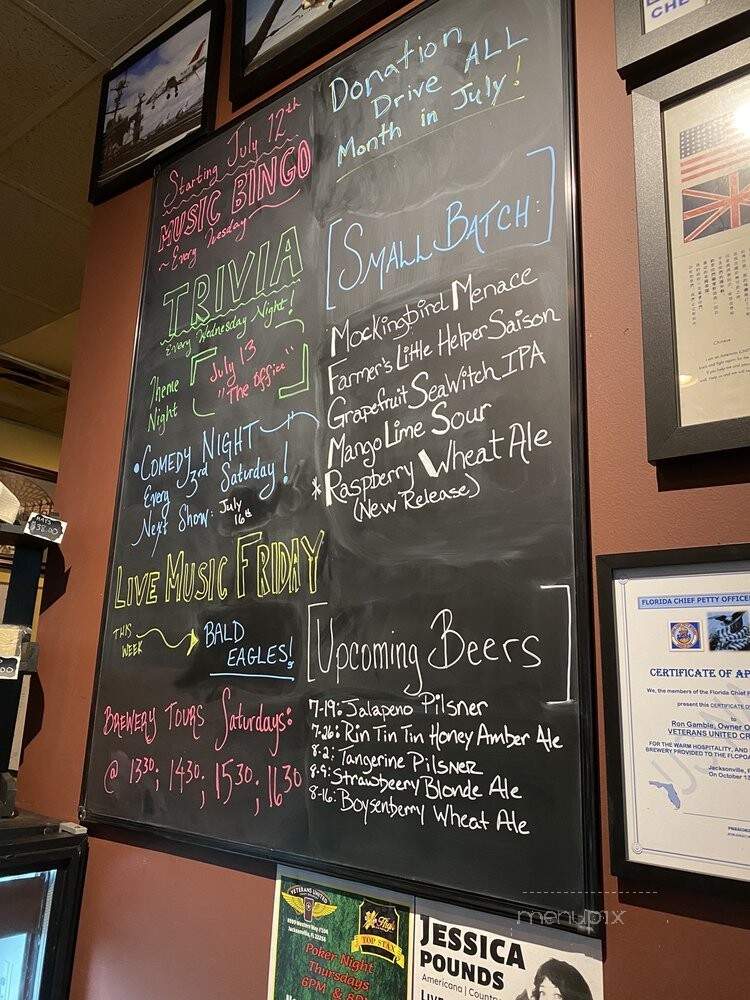 Starting July 12th
MUSIC BINGO
~ Every Tuesday ~
TRIVIA
Every Wednesday Night!
Theme
Night
July 13
"The Office"
•COMEDY NIGHT
Every 3rd Saturday!
Next Show: July
16th
LIVE MUSIC FRIDAY
THIS
WEEK
BALD
EAGLES!
BREWERY TOURS Saturdays:
@ 1330; 1430; 1530; 1630
Donation
Drive ALL
Month in July!
[SMALL BATCH:]
Mockingbird Menace
Farmer's Little Helper Saison
Grapefruit SeaWitch IPA
Mango Lime Sour
*Raspberry Wheat Ale
(New Release)
[Upcoming Beers]
7-19: Jalapeno Pilsner
7-26: Rin Tin Tin Honey Amber Ale
8-2: Tangerine PILSNER
8-9: Strawbeery Blonde Ale
8-16: Boysenberry Wheat Ale
HATS
$38.00
.00
CHE
FLORIDA CHIEF PETTY OFFICE
CERTIFICATE OF AP
We, the members of the Florida Chief P
present this CERTIFICATE O
to
Ron Gamble, Owner O
VETERANS UNITED CR
FOR THE WARM HOSPITALITY, AND
BREWERY PROVIDED TO THE FLCPOA
Jacksonville, F
On October 13
VETERANS UNITED
8999 Western Way #104
Jacksonville, FL 32256
TOP STAX
Poker Night
Thursdays
6PM & 8P
JESSICA
POUNDS
Americana | Country
LIVE
menupix